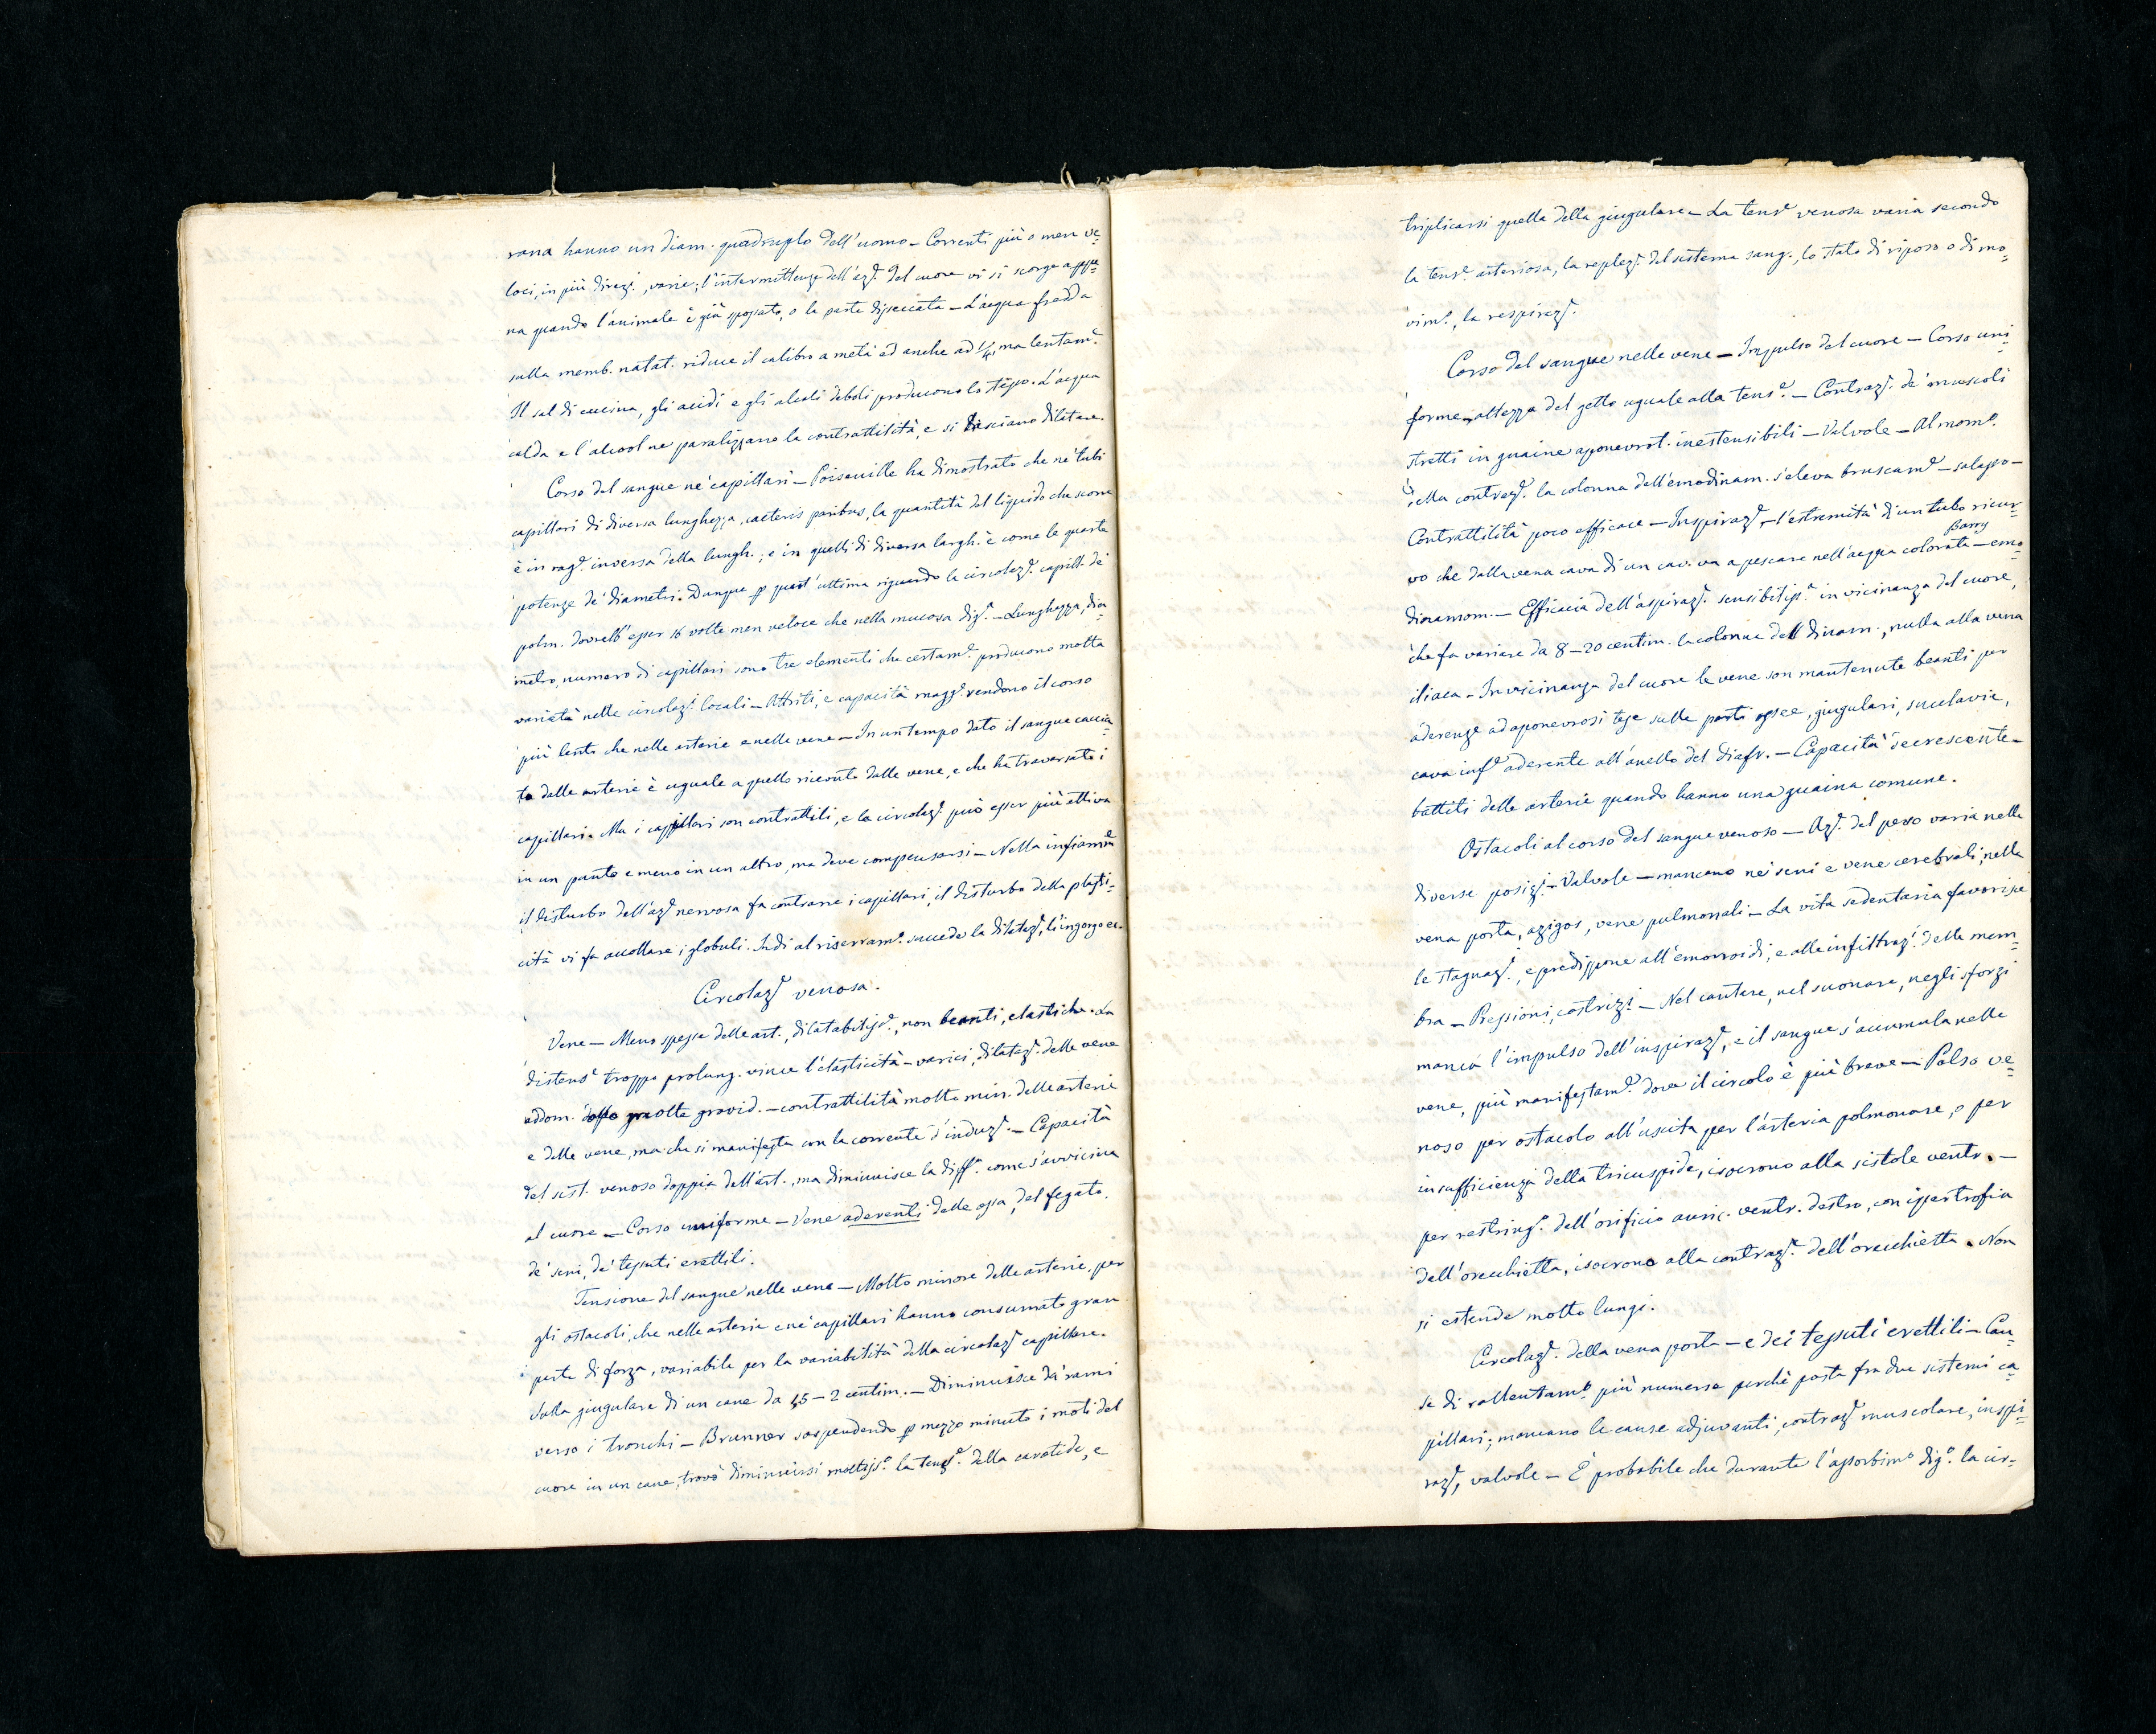 rana hanno un diam. quadruplo dell'uomo – Correnti più o men ve=
loci, in più direz.i, varie; l'intermittenza dell'az.e del cuore vi si scorge appe=
na quando l'animale è già spossato, o la parte disseccata – L'acqua fredda
sulla memb. natat. riduce il calibro a metà ed anche ad 1/4, ma lentam.e
Il sal di cucina, gli acidi e gli alcali deboli producono lo stesso. L'acqua
calda e l'alcool ne paralizzano la contrattilità, e si lasciano dilatare.
Corso del sangue ne' capillari – Poiseuille ha dimostrato che ne' tubi
capillari di diversa lunghezza, caeteris paribus, la quantità del liquido che scorre
è in rag.e inversa della lungh.; e in quelli di diversa largh. è come le quarte
potenze de' diametri. Dunque p quest'ultima riguardo la circolaz.e capill. de'
polm. dovrebb'esser 16 volte men veloce che nella mucosa dig.e – Lunghezza, dia=
metro, numero di capillari sono tre elementi che certam.e producono molta
varietà nelle circolaz.i locali – Attriti, e capacità magg.e rendono il corso
più lento che nelle arterie e nelle vene – In un tempo dato il sangue caccia=
to dalle arterie è uguale a quello ricevuto dalle vene, e che ha traversato i
capillari. Ma i capillari son contrattili, e la circolaz.e può esser più attiva
in un punto e meno in un altro, ma deve compensarsi – Nella infiam.ne
il disturbo dell'az.e nervosa fa contrarre i capillari, il disturbo della plasti=
cità vi fa accollare i globuli. Indi al riserram.o succede la dilataz.e, l'ingorgo ec.
Circolaz.e venosa.
Vene – Meno spesse delle art., dilatabiliss.e, non beanti, elastiche. La
distens.e troppo prolung. vince l'elasticità – varici, dilataz.e delle vene
addom. dopo molte gravid. – contrattilità molto min. delle arterie
e delle vene, ma che si manifesta con la corrente d'induz.e – Capacità
del sist. venoso doppia dell'art., ma diminuisce la diff.a come s'avvicina
al cuore – Corso uniforme – Vene aderenti delle ossa, del fegato,
de' seni, de' tessuti erettili.
Tensione del sangue nelle vene – Molto minore delle arterie, per
gli ostacoli, che nelle arterie e ne' capillari hanno consumato gran
parte di forza, variabile per la variabilità della circolaz.e capillare.
Sulla giugulare di un cane da 1,5 – 2 centim. – Diminuisce da' rami
verso i tronchi – Brunner sospendendo p mezzo minuto i moti del
cuore in un cane, trovò diminuirsi moltiss.o la tens.e della carotide, e
triplicarsi quella della giugulare – La tens.e venosa varia secondo
la tens.e arteriosa, la replez.e del sistema sang., lo stato di riposo o di mo=
vim.o, la respiraz.e
Corso del sangue nelle vene – Impulso del cuore – Corso uni=
forme – altezza del getto uguale alla tens.e – Contraz.e de' muscoli
stretti in guaine aponevrot. inestensibili – Valvole – Al mom.o
della contraz.e la colonna dell'emodinam. s'eleva bruscam.e – salasso –
Contrattilità poco efficace – Inspiraz.e – l'estremità d'un tubo ricur=
Barry
vo che dalla vena cava di un cav. va a pescare nell'acqua colorata – emo=
dinamom. – Efficacia dell'aspiraz.e sensibiliss.a in vicinanza del cuore,
che fa variare da 8 – 20 centim. la colonna dell dinam., nulla alla vena
iliaca – In vicinanza del cuore le vene son mantenute beanti per
aderenze ad aponevrosi tese sulle parti ossee, giugulari, succlavie,
cava inf.e aderente all'anello del diafr. – Capacità decrescente –
battiti delle arterie quando hanno una guaina comune.
Ostacoli al corso del sangue venoso – Az.e del peso varia nelle
diverse posiz.i – Valvole – mancano ne' seni e vene cerebrali, nella
vena porta, azigos, vene pulmonali – La vita sedentaria favorisce
le stagnaz.i, e predispone all'emorroidi, e alle infiltraz.i delle mem=
bra – Pressioni, costriz.i – Nel cantare, nel suonare, negli sforzi
manca l'impulso dell'inspiraz.e, e il sangue s'accumula nelle
vene, più manifestam.e dove il circolo è più breve – Polso ve=
noso per ostacolo all'uscita per l'arteria polmonare, o per
insufficienza della tricuspide, isocrono alla sistole ventr. –
per restring.o dell'orificio auric. ventr. destro, con ipertrofia
dell'orecchietta, isocrono alla contraz.e dell'orecchietta. Non
si estende molto lungi.
Circolaz.e della vena porta – e dei tessuti erettili – Cau=
se di rallentam.o più numerose perchè posta fra due sistemi ca=
pillari; mancano le cause adjuvanti, contraz.e muscolare, inspi=
raz.e, valvole – È probabile che durante l'assorbim.o dig.o la cir=